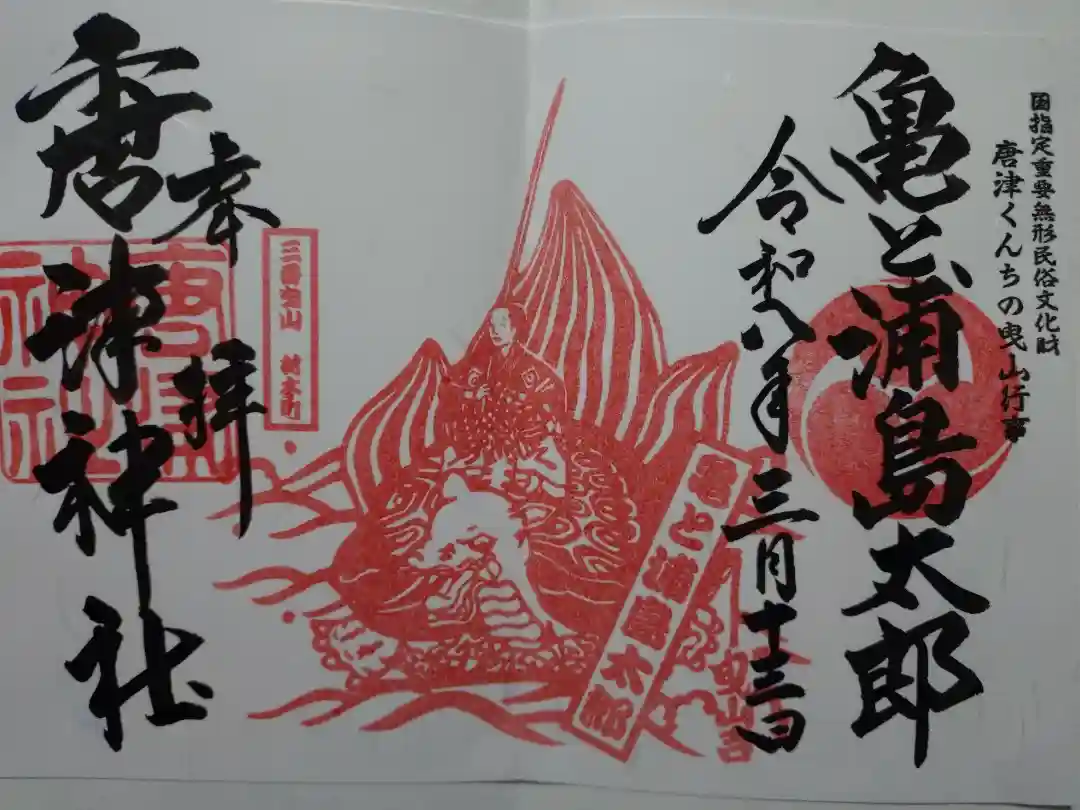 国指定重要無形民俗文化財
唐津くんちの曳山行事
亀と浦島太郎
令和八年三月十三日
亀と浦島太郎
三番曳山 材木町
奉拝
唐津神社
唐津
神社